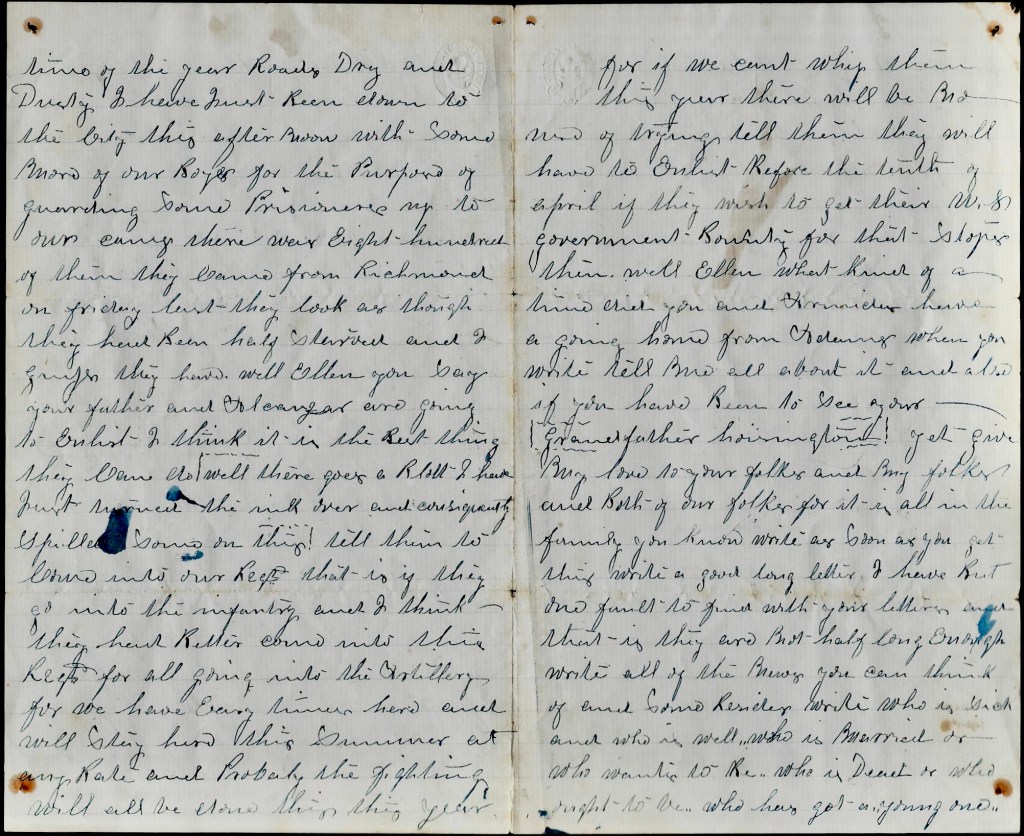 time of the year Roads Dry and
Dusty I have Just Been down to
the City this after Noon with Some
More of our Boys for the Purpose of
guarding Some Prisioners up to
our camp there was Eight hundred
of them they Came from Richmond
on friday last they look as though
they had Been half Starved and I
guess they have. well Ellen you Say
your father and are going
to Enlist I think it is the Best thing
they Can do (well there goes a Blott I have
Just turned the ink over and consiquently
Spilled Some on this) tell them to
Come into our Regt that is if they
go into the infantry and I think
they had Better come into this
Regt for all going into the Artillery
for we have Easy times here and
will Stay here this Summer at
any Rate and Probaly the fighting
will all be done this this year
for if we cant whip them
this year there will be No
use of trying tell them they will
have to Enlist Before the tenth of
april if they wish to get their U.S
government Bounty for that Stops
then. well Ellen what kind of a
time did you and have
a going home from Adams when you
write tell Me all about it and also
if you have Been to See your
(Grandfather ) yet give
My love to your folks and My folks
and Both of our folks for it is all in the
family you know write as Soon as you get
this write a good long letter I have But
one fault to find with your letters and
that is they are Not half long Enough
write all of the News you can think
of and Some Besides write who is Sick
and who is well.. who is Married or
who wants to Be.. who is Dead or who
ought to be.. who has got a young one..